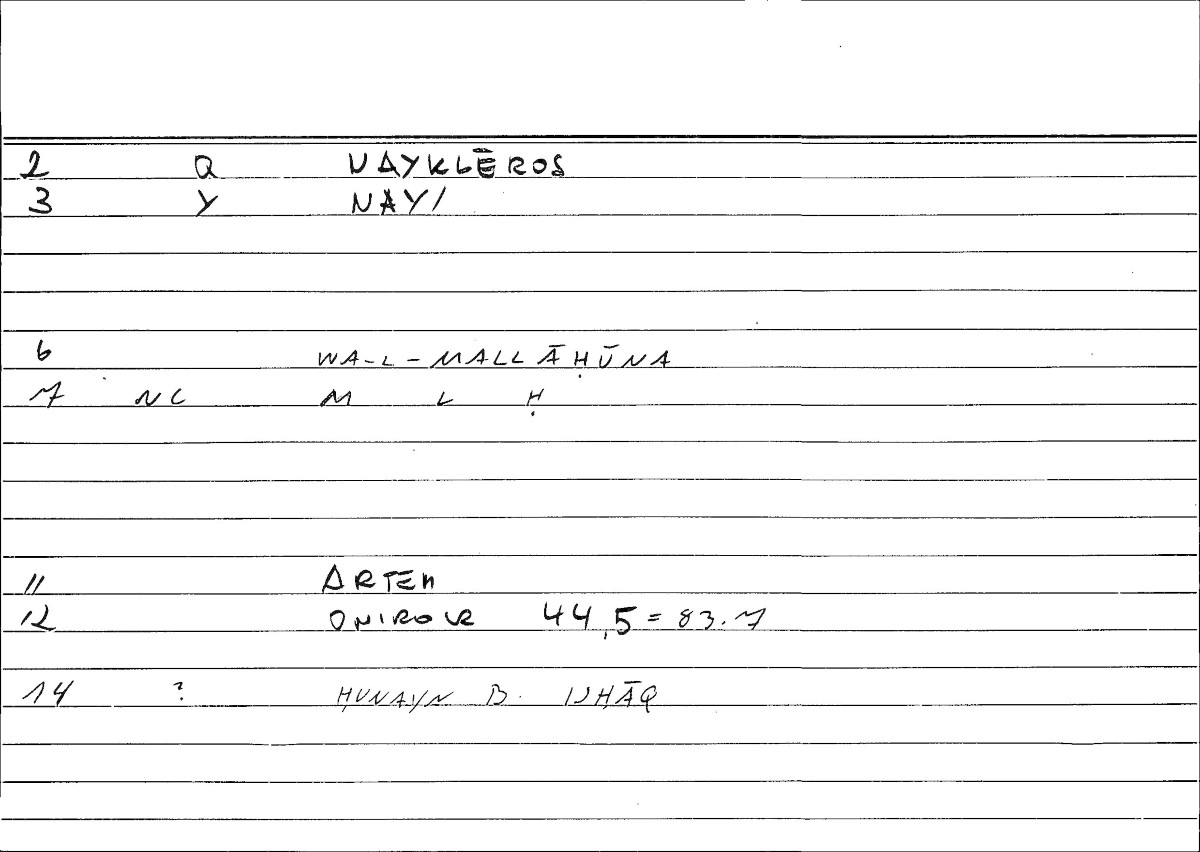 2 Q NAYKLĒROS
3 Y NAY/
6 WA-L-MALLĀḤŪNA
7 NC M L Ḥ
11 ARTEM
12 ONIROCR 44,5 = 83.7
14 ? ḤUNAYN B. ISḤĀQ